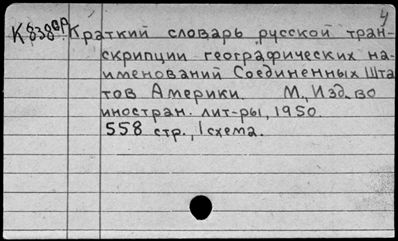 4
K838ср Краткий словарь русской тран-
скрипции географических на-
именований Соединенных Шта
тов Америки. М., Изд-во
иностран. лит-ры, 1950.
558 стр., 1 схема.